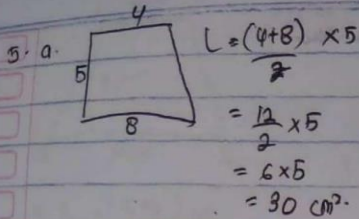 5. a.
4
5
8
L = (4+8)/2 × 5
= 12/2 × 5
= 6×5
= 30 cm².